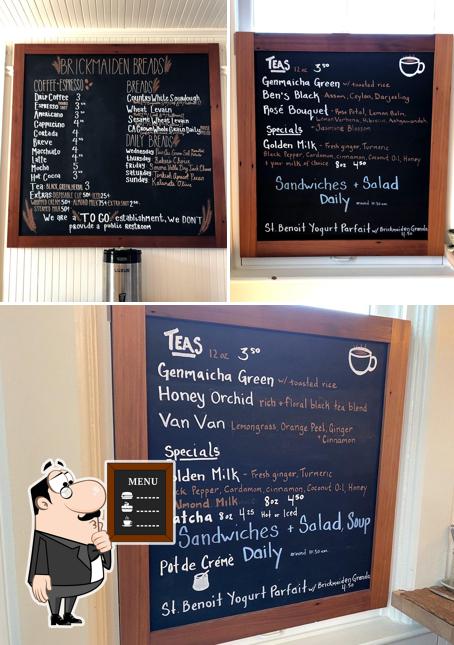 BRICKMAIDEN BREADS
COFFEE+ESPRESSO
Drip Coffee 3
Espresso 3
Americano 3
Cappuccino 4
Cortado 4
Breve 4
Macchiato 4
Latte 4
Mocha 5
Hot Cocoa 3
Tea BLACK, GREEN, HERBAL 3
Extras
We are a TO GO establishment, we DON'T
provide a public RESTROOM
BREADS
Country White Sourdough
Wheat Levain
Sesame Wheat Levain
CA Grown Whole Grain Daily
DAILY BREADS
Wednesday
Thursday
Friday
Saturday
Sunday Kalamata Olive
TEAS 12 oz 3.50
Genmaicha Green w/ toasted rice
Ben's Black Assam, Ceylon, Darjeeling
Rosé Bouquet - Rose Petal, Lemon Balm,
Lemon Verbena, Hibiscus, Ashwagandah
+ Jasmine Blossom
Specials
Golden Milk - Fresh ginger, Turmeric
Black Pepper, Cardamom, cinnamon, Coconut Oil, Honey
+ your milk of choice 8oz 4.50
Sandwiches + Salad
Daily around 11:30 am
St. Benoit Yogurt Parfait w/ Brickmaiden Granola
TEAS 12 oz 3.50
Genmaicha Green w/ toasted rice
Honey Orchid rich + floral black tea blend
Van Van Lemongrass, Orange Peel, Ginger
+ Cinnamon
Specials
olden Milk - Fresh ginger, Turmeric
ck Pepper, Cardamom, cinnamon, Coconut Oil, Honey
Almond Milk 8oz 4.50
atcha 8oz 4.25 Hot or Iced
Sandwiches + Salad, Soup
Daily around 11:30 am
Pot de Crémé
St. Benoit Yogurt Parfait w/ Brickmaiden Granola
MENU